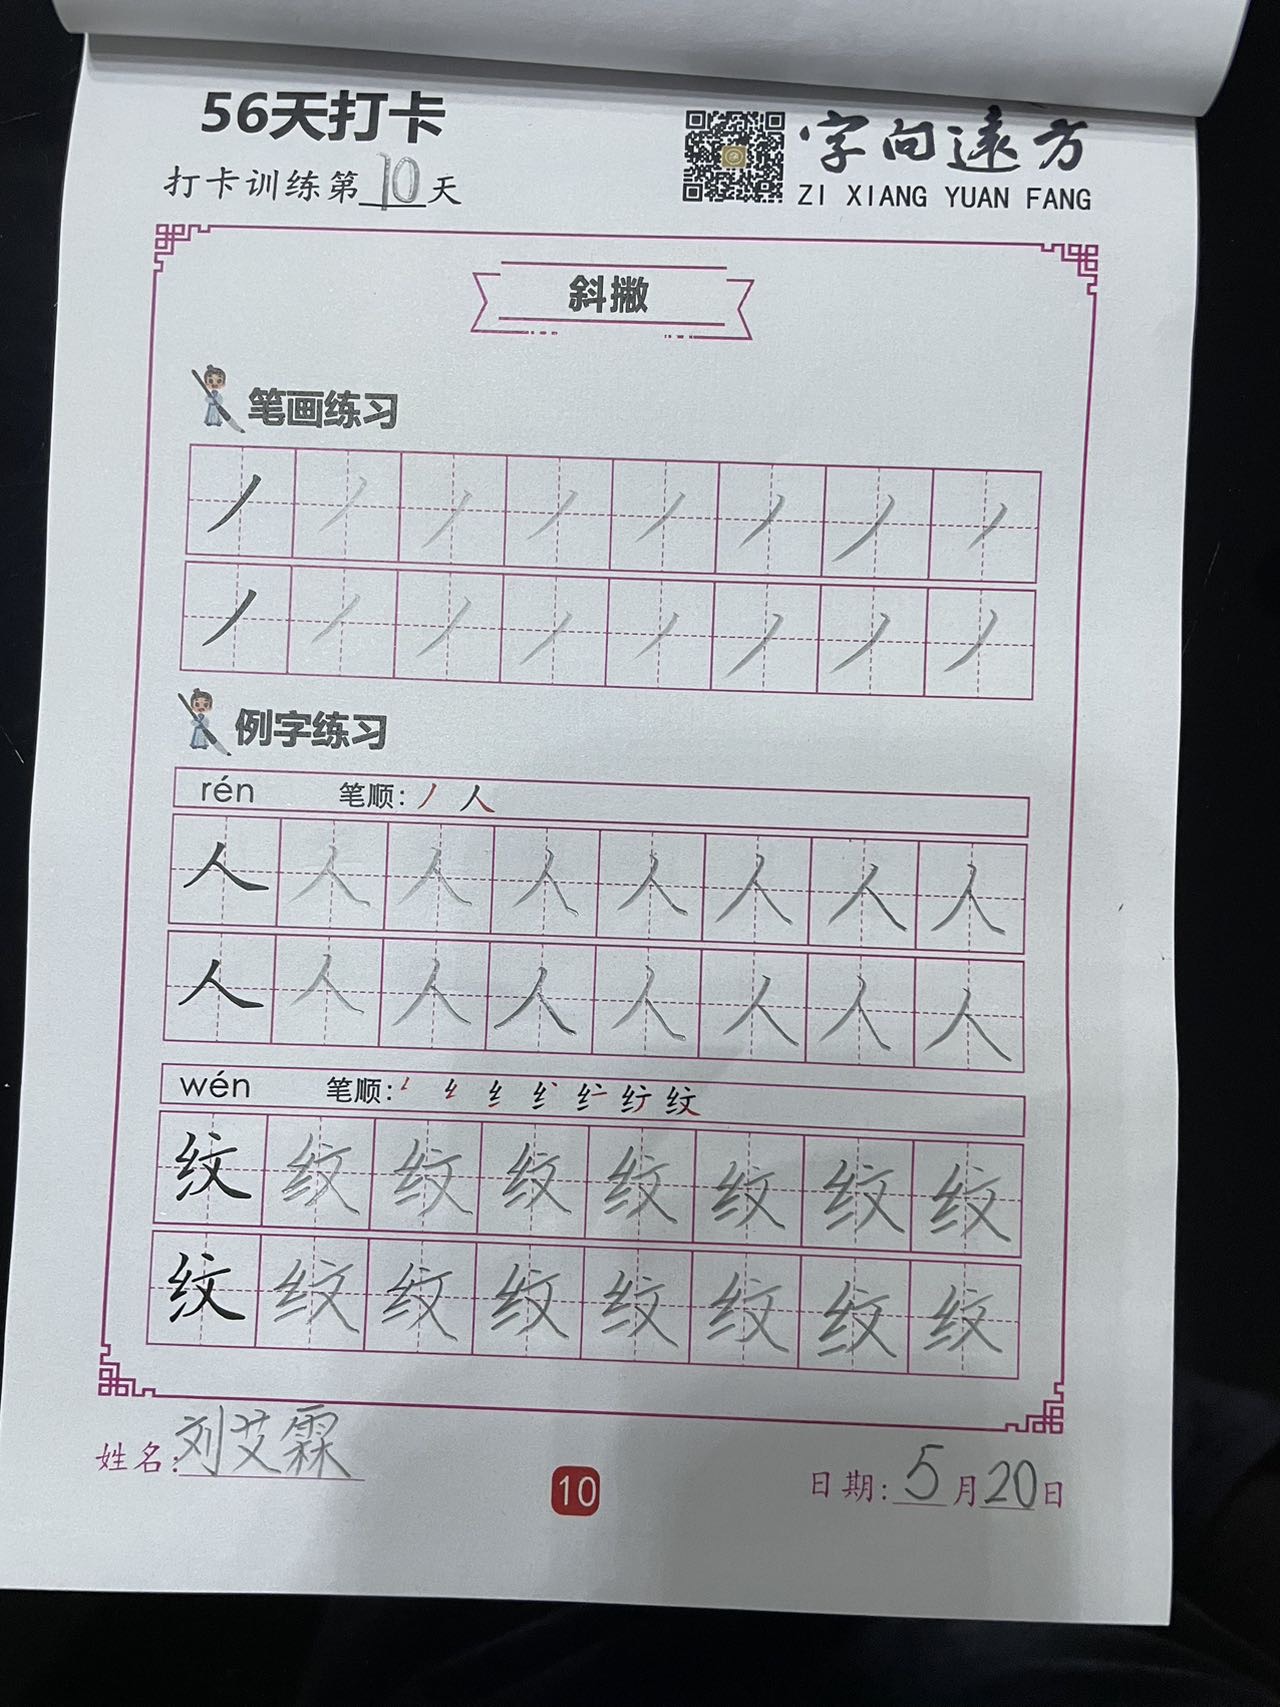 56天打卡
打卡训练第10天
字向遠方
ZI XIANG YUAN FANG
斜撇
笔画练习
丿丿丿丿丿丿丿丿
丿丿丿丿丿丿丿丿
例字练习
rén 笔顺: 丿 人
人人人人人人人人
人人人人人人人人
wén 笔顺: 纹
纹纹纹纹纹纹纹纹
纹纹纹纹纹纹纹纹
姓名:刘艾霖
10
日期:5月20日